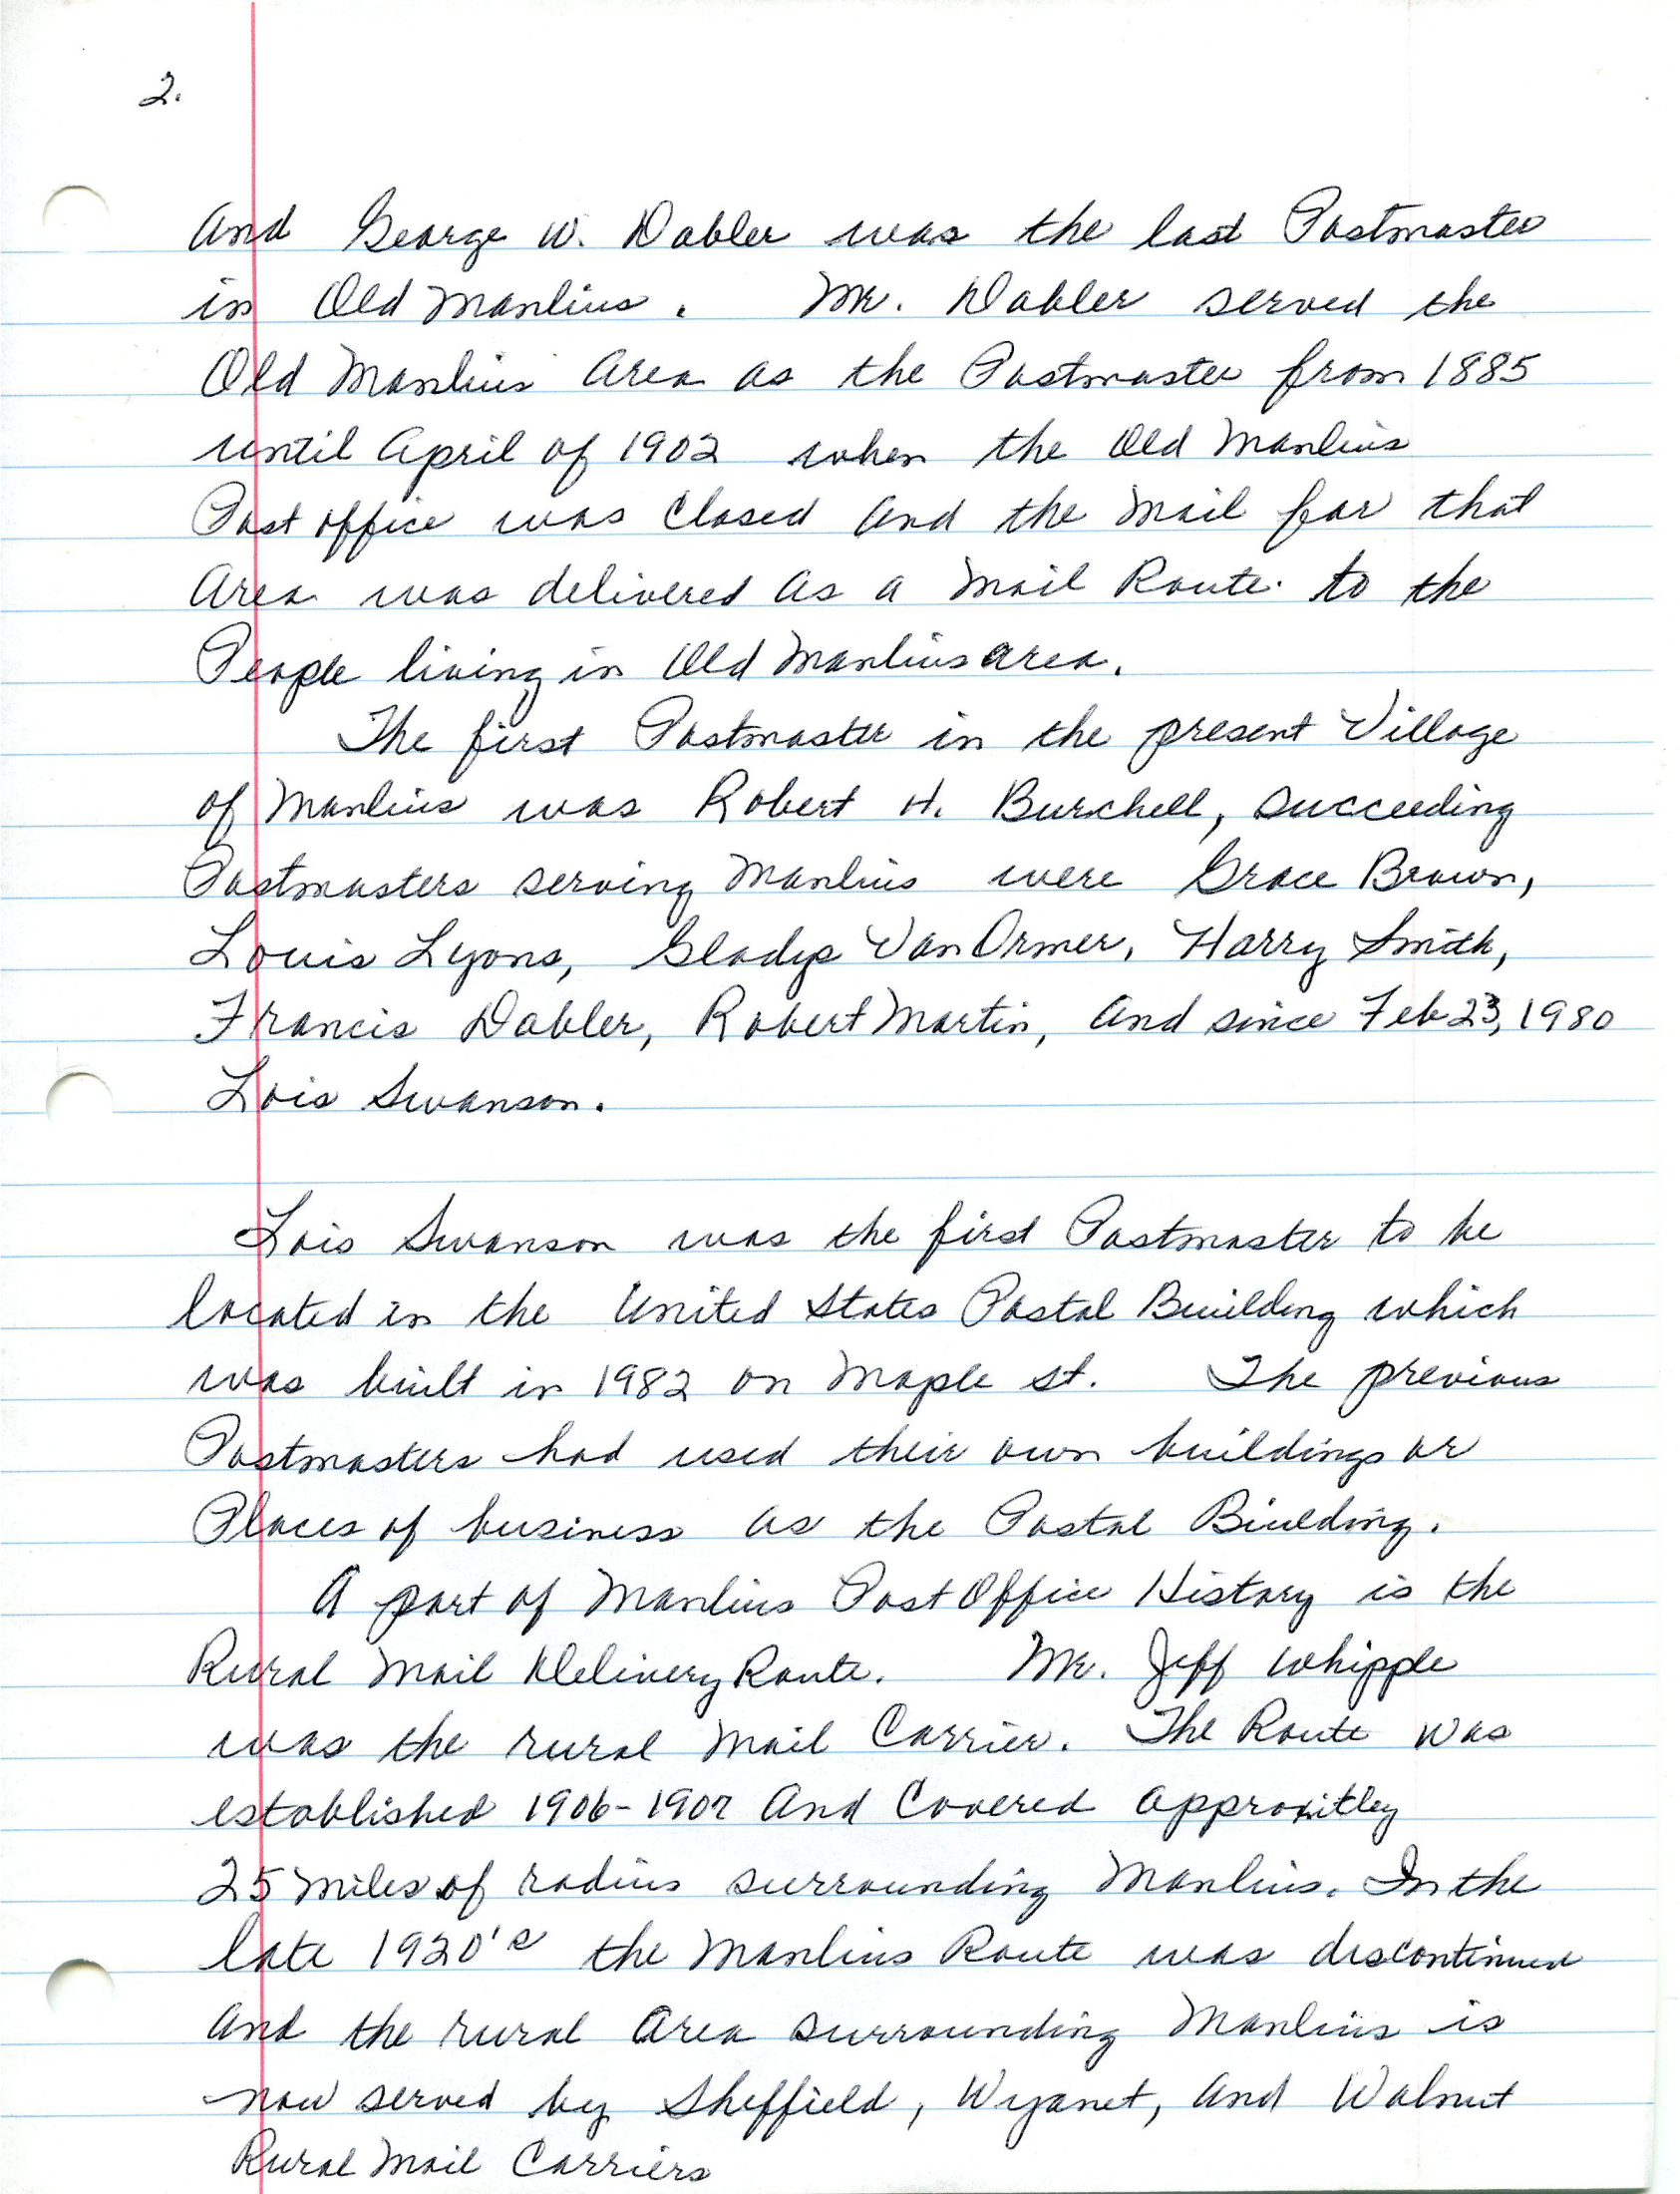 2.
And George W. Dabler was the last Postmaster
in Old Manlius. Mr. Dabler served the
Old Manlius Area as the Postmaster from 1885
until April of 1902 when the Old Manlius
Post office was Closed And the Mail for that
Area was delivered As a Mail Route to the
People living in Old Manlius area.
The first Postmaster in the present Village
of Manlius was Robert H. Burchell, succeeding
Postmasters serving Manlius were Grace Brown,
Louis Lyons, Gladys VanOrmer, Harry Smith,
Francis Dabler, Robert Martin, And since Feb 23, 1980
Lois Swanson.
Lois Swanson was the first Postmaster to be
located in the United States Postal Building which
was built in 1982 on Maple St. The previous
Postmasters had used their own buildings or
Places of business as the Postal Building.
A part of Manlius Post Office History is the
Rural Mail Delivery Route. Mr. Jeff Whipple
was the rural Mail Carrier. The Route was
established 1906-1907 And Covered Approxitley
25 Miles of radius surrounding Manlius. In the
late 1920's the Manlius Route was discontinued
And the rural Area surrounding Manlius is
now served by Sheffield, Wyanet, And Walnut
Rural Mail Carriers